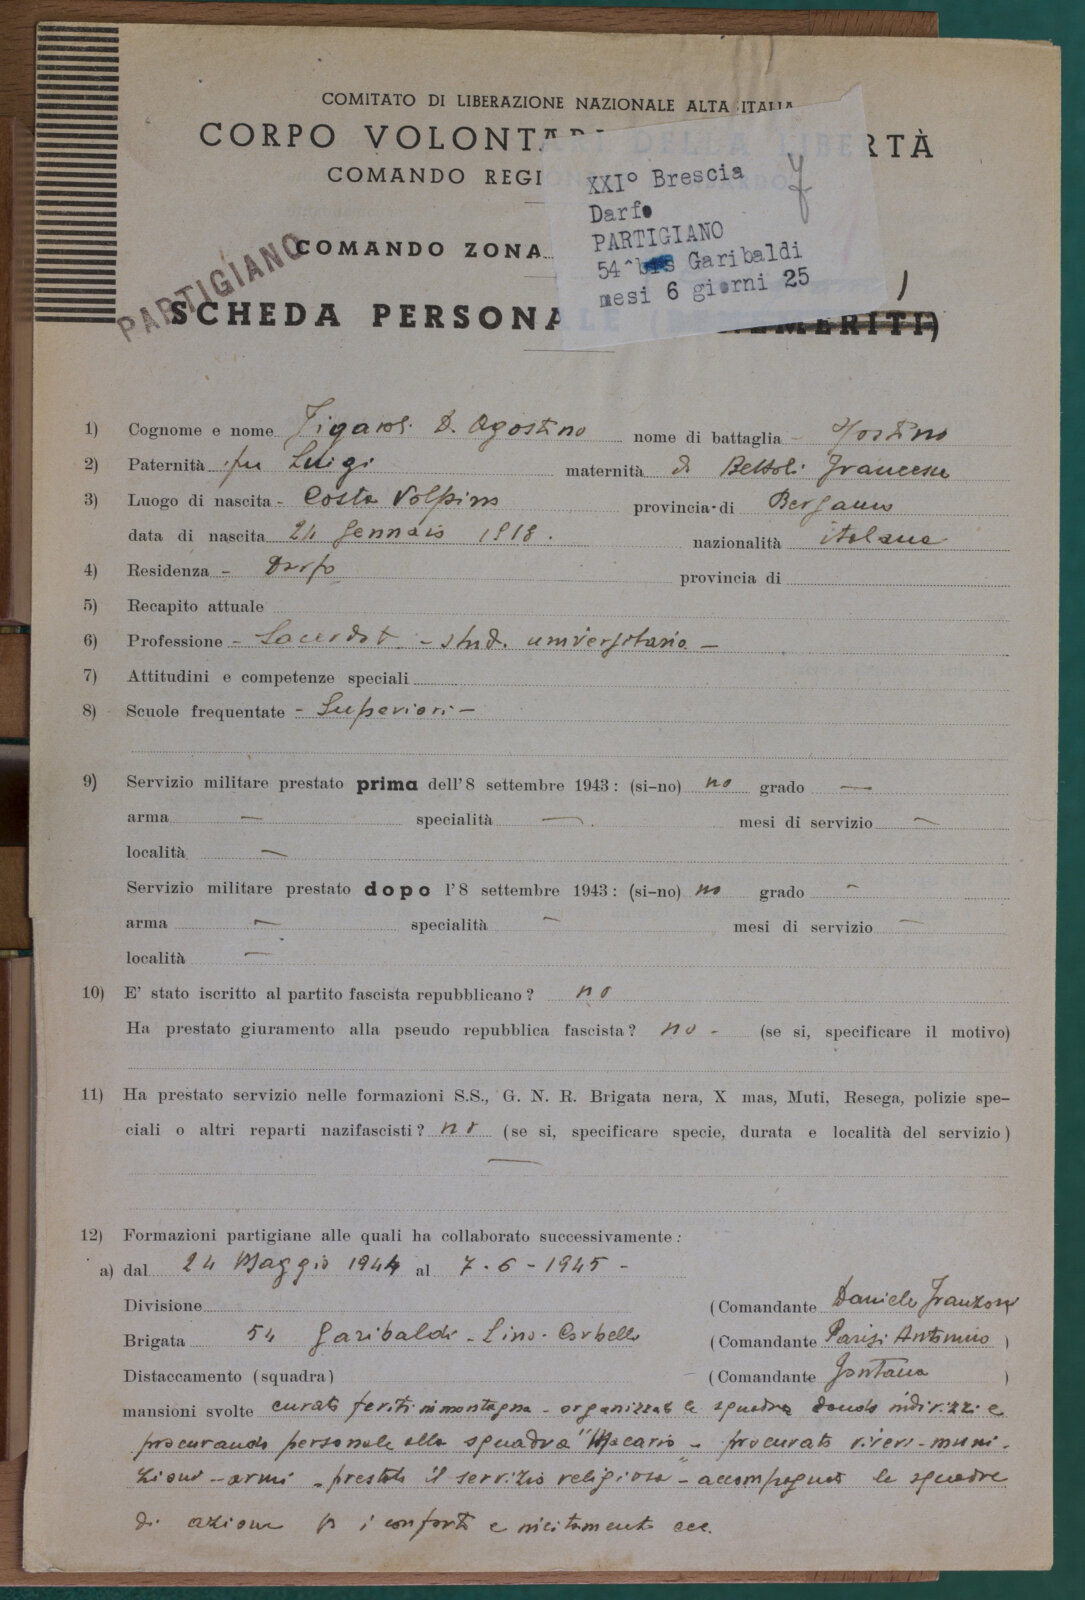 COMITATO DI LIBERAZIONE NAZIONALE ALTA ITALIA
CORPO VOLONTARI DELLA LIBERTÀ
COMANDO REGI
COMANDO ZONA
XXI° Brescia
Darfo
PARTIGIANO
54^bis Garibaldi
mesi 6 giorni 25
PARTIGIANO
SCHEDA PERSONALE (BENEMERITI)
1) Cognome e nome Figaroli D. Agostino nome di battaglia - Hostino
2) Paternità fu Luigi maternità di Bettoli Francesca
3) Luogo di nascita - Costa Volpino provincia di Bergamo
data di nascita 24 Gennaio 1918. nazionalità italiana
4) Residenza - Darfo provincia di
5) Recapito attuale
6) Professione - Sacerdote - stud. universitario -
7) Attitudini e competenze speciali
8) Scuole frequentate - Superiori -
9) Servizio militare prestato prima dell'8 settembre 1943: (si-no) no grado —
arma — specialità — mesi di servizio —
località —
Servizio militare prestato dopo l'8 settembre 1943: (si-no) no grado -
arma — specialità - mesi di servizio —
località —
10) E' stato iscritto al partito fascista repubblicano? no
Ha prestato giuramento alla pseudo repubblica fascista? no - (se si, specificare il motivo)
11) Ha prestato servizio nelle formazioni S.S., G. N. R. Brigata nera, X mas, Muti, Resega, polizie spe-
ciali o altri reparti nazifascisti? no (se si, specificare specie, durata e località del servizio)
—
12) Formazioni partigiane alle quali ha collaborato successivamente:
a) dal 24 Maggio 1944 al 7-6-1945-
Divisione (Comandante Daniele Franzoni
Brigata 54 Garibaldi - Lino Corbelli (Comandante Parisi Antonino )
Distaccamento (squadra) (Comandante Fontana )
mansioni svolte curato feriti in montagna - organizzato le squadre dando indirizzi e
procurando personale alla squadra "Macario" - procurato viveri - muni-
zioni - armi - prestato il servizio religioso - accompagnato le squadre
di azione p i conforti e incitamenti ecc.